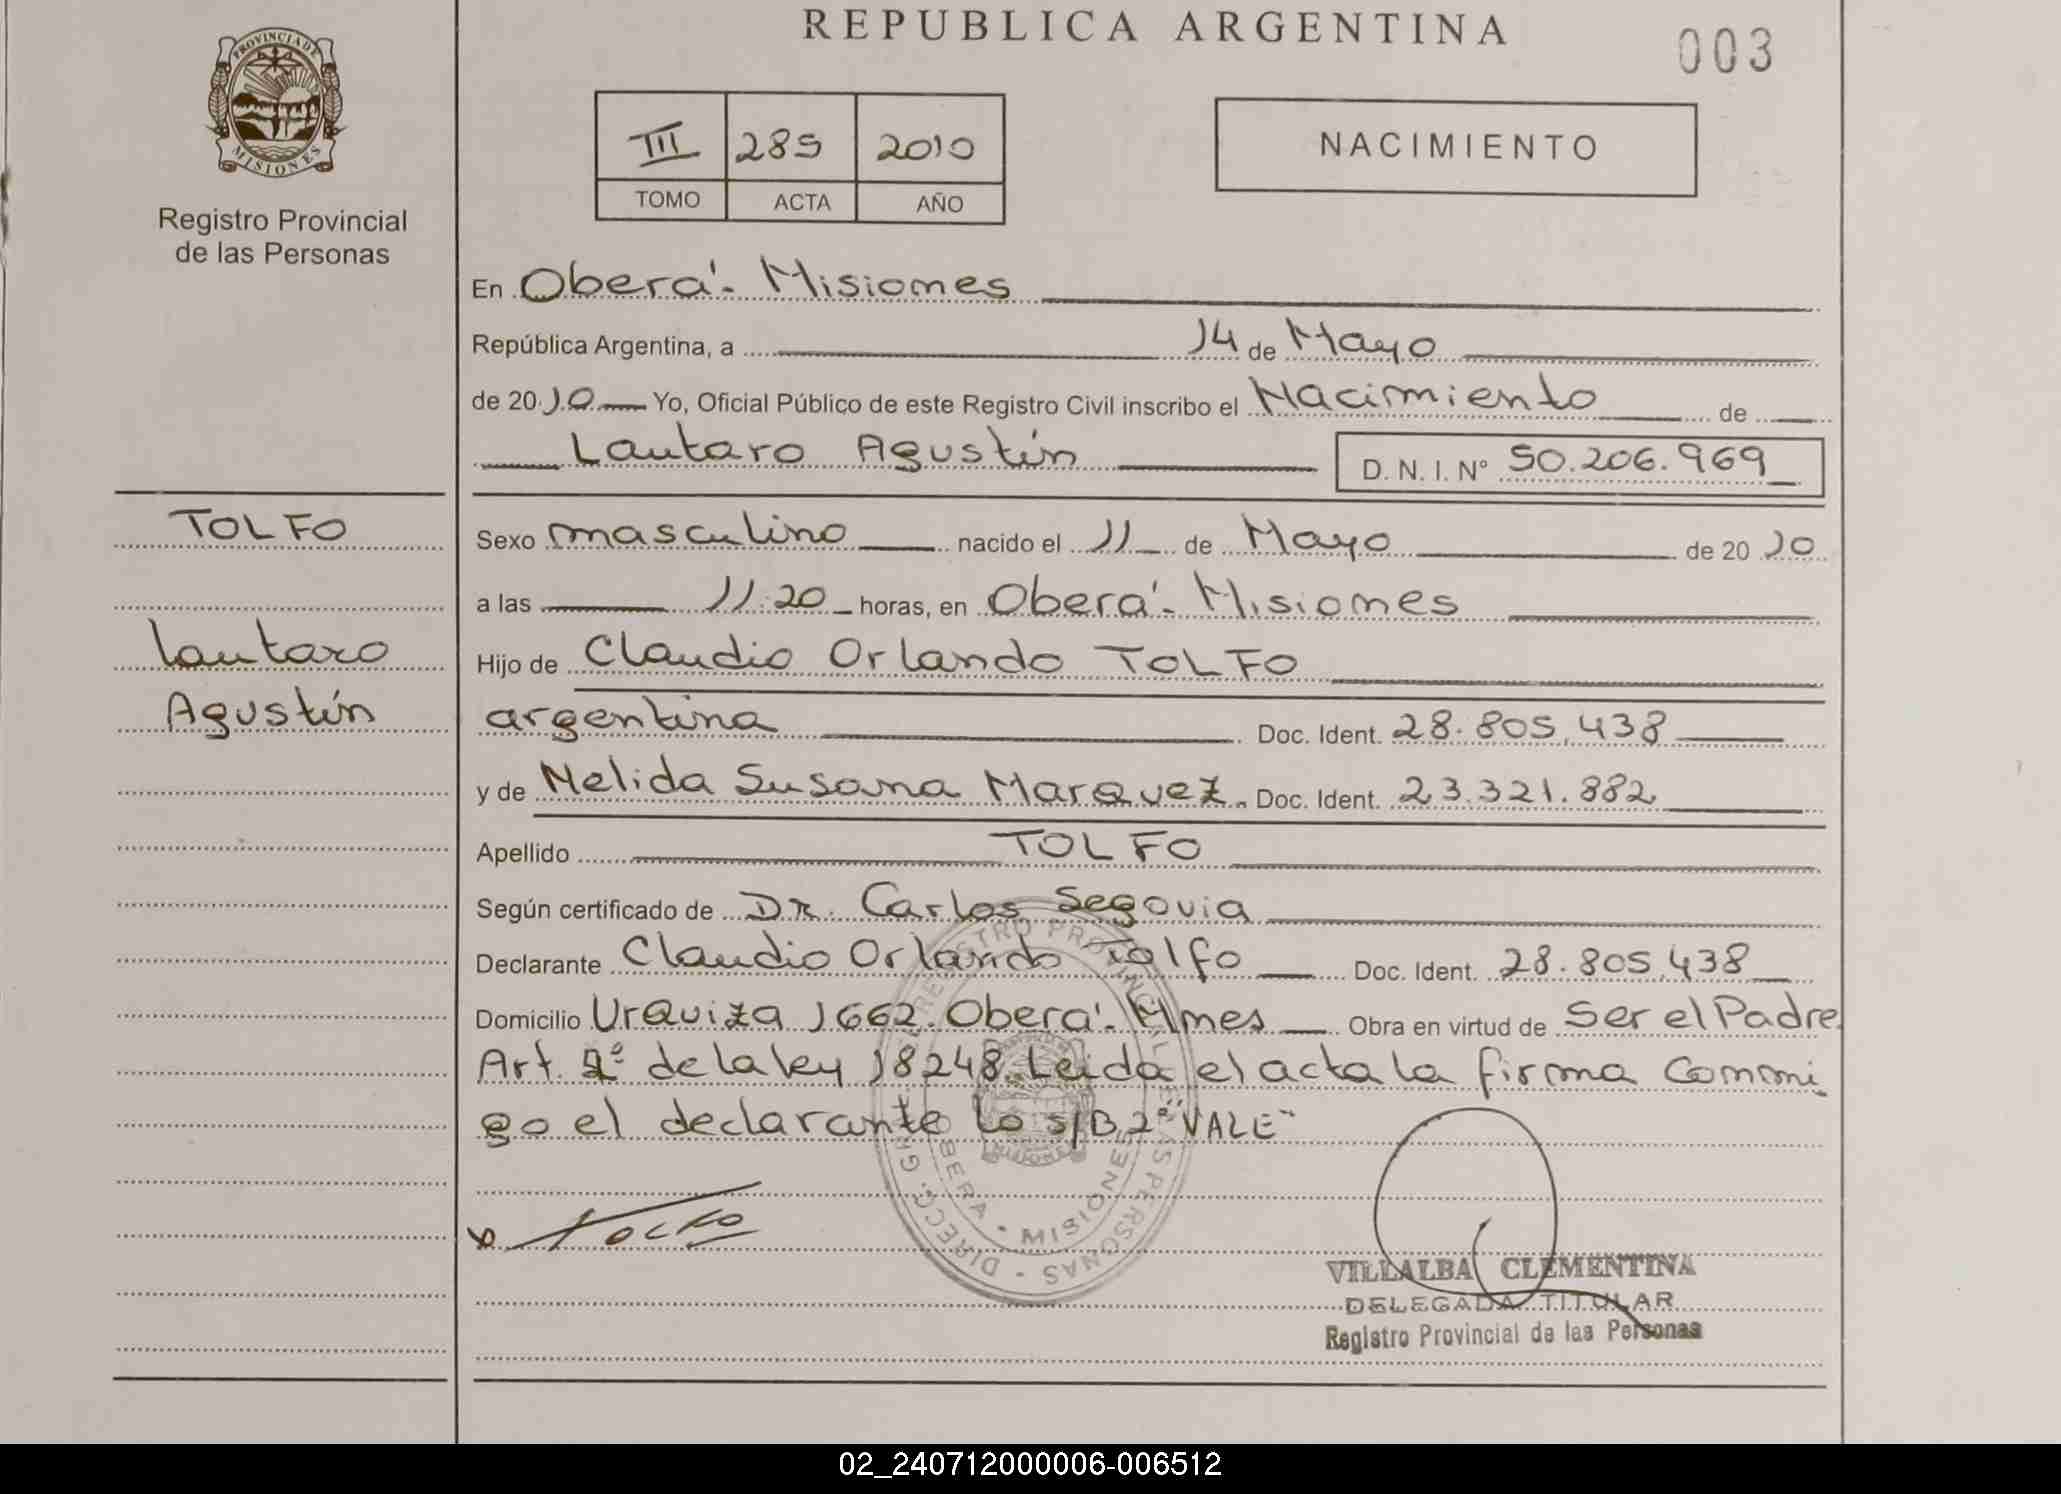 REPUBLICA ARGENTINA
003
PROVINCIA DE
MISIONES
Registro Provincial
de las Personas
III 285 2010
TOMO ACTA AÑO
NACIMIENTO
En Oberá - Misiones
República Argentina, a 14 de Mayo
de 2010 Yo, Oficial Público de este Registro Civil inscribo el Nacimiento de
Lautaro Agustín D. N. I. N° 50.206.969
TOLFO
Lautaro
Agustín
Sexo masculino nacido el 11 de Mayo de 2010
a las 11:20 horas, en Oberá - Misiones
Hijo de Claudio Orlando TOLFO
argentina Doc. Ident. 28.805.438
y de Nelida Susana Marquez. Doc. Ident. 23.321.882
Apellido TOLFO
Según certificado de Dr. Carlos Segovia
Declarante Claudio Orlando Tolfo Doc. Ident. 28.805.438
Domicilio Urquiza 1662. Oberá - Mnes Obra en virtud de Ser el Padre
Art. 2° de la ley 18248. Leida el acta la firma Conmi
go el declarante lo s/B 2° "VALE"
OBERA - MISIONES
VILLALBA CLEMENTINA
DELEGADA TITULAR
Registro Provincial de las Personas
02_240712000006-006512